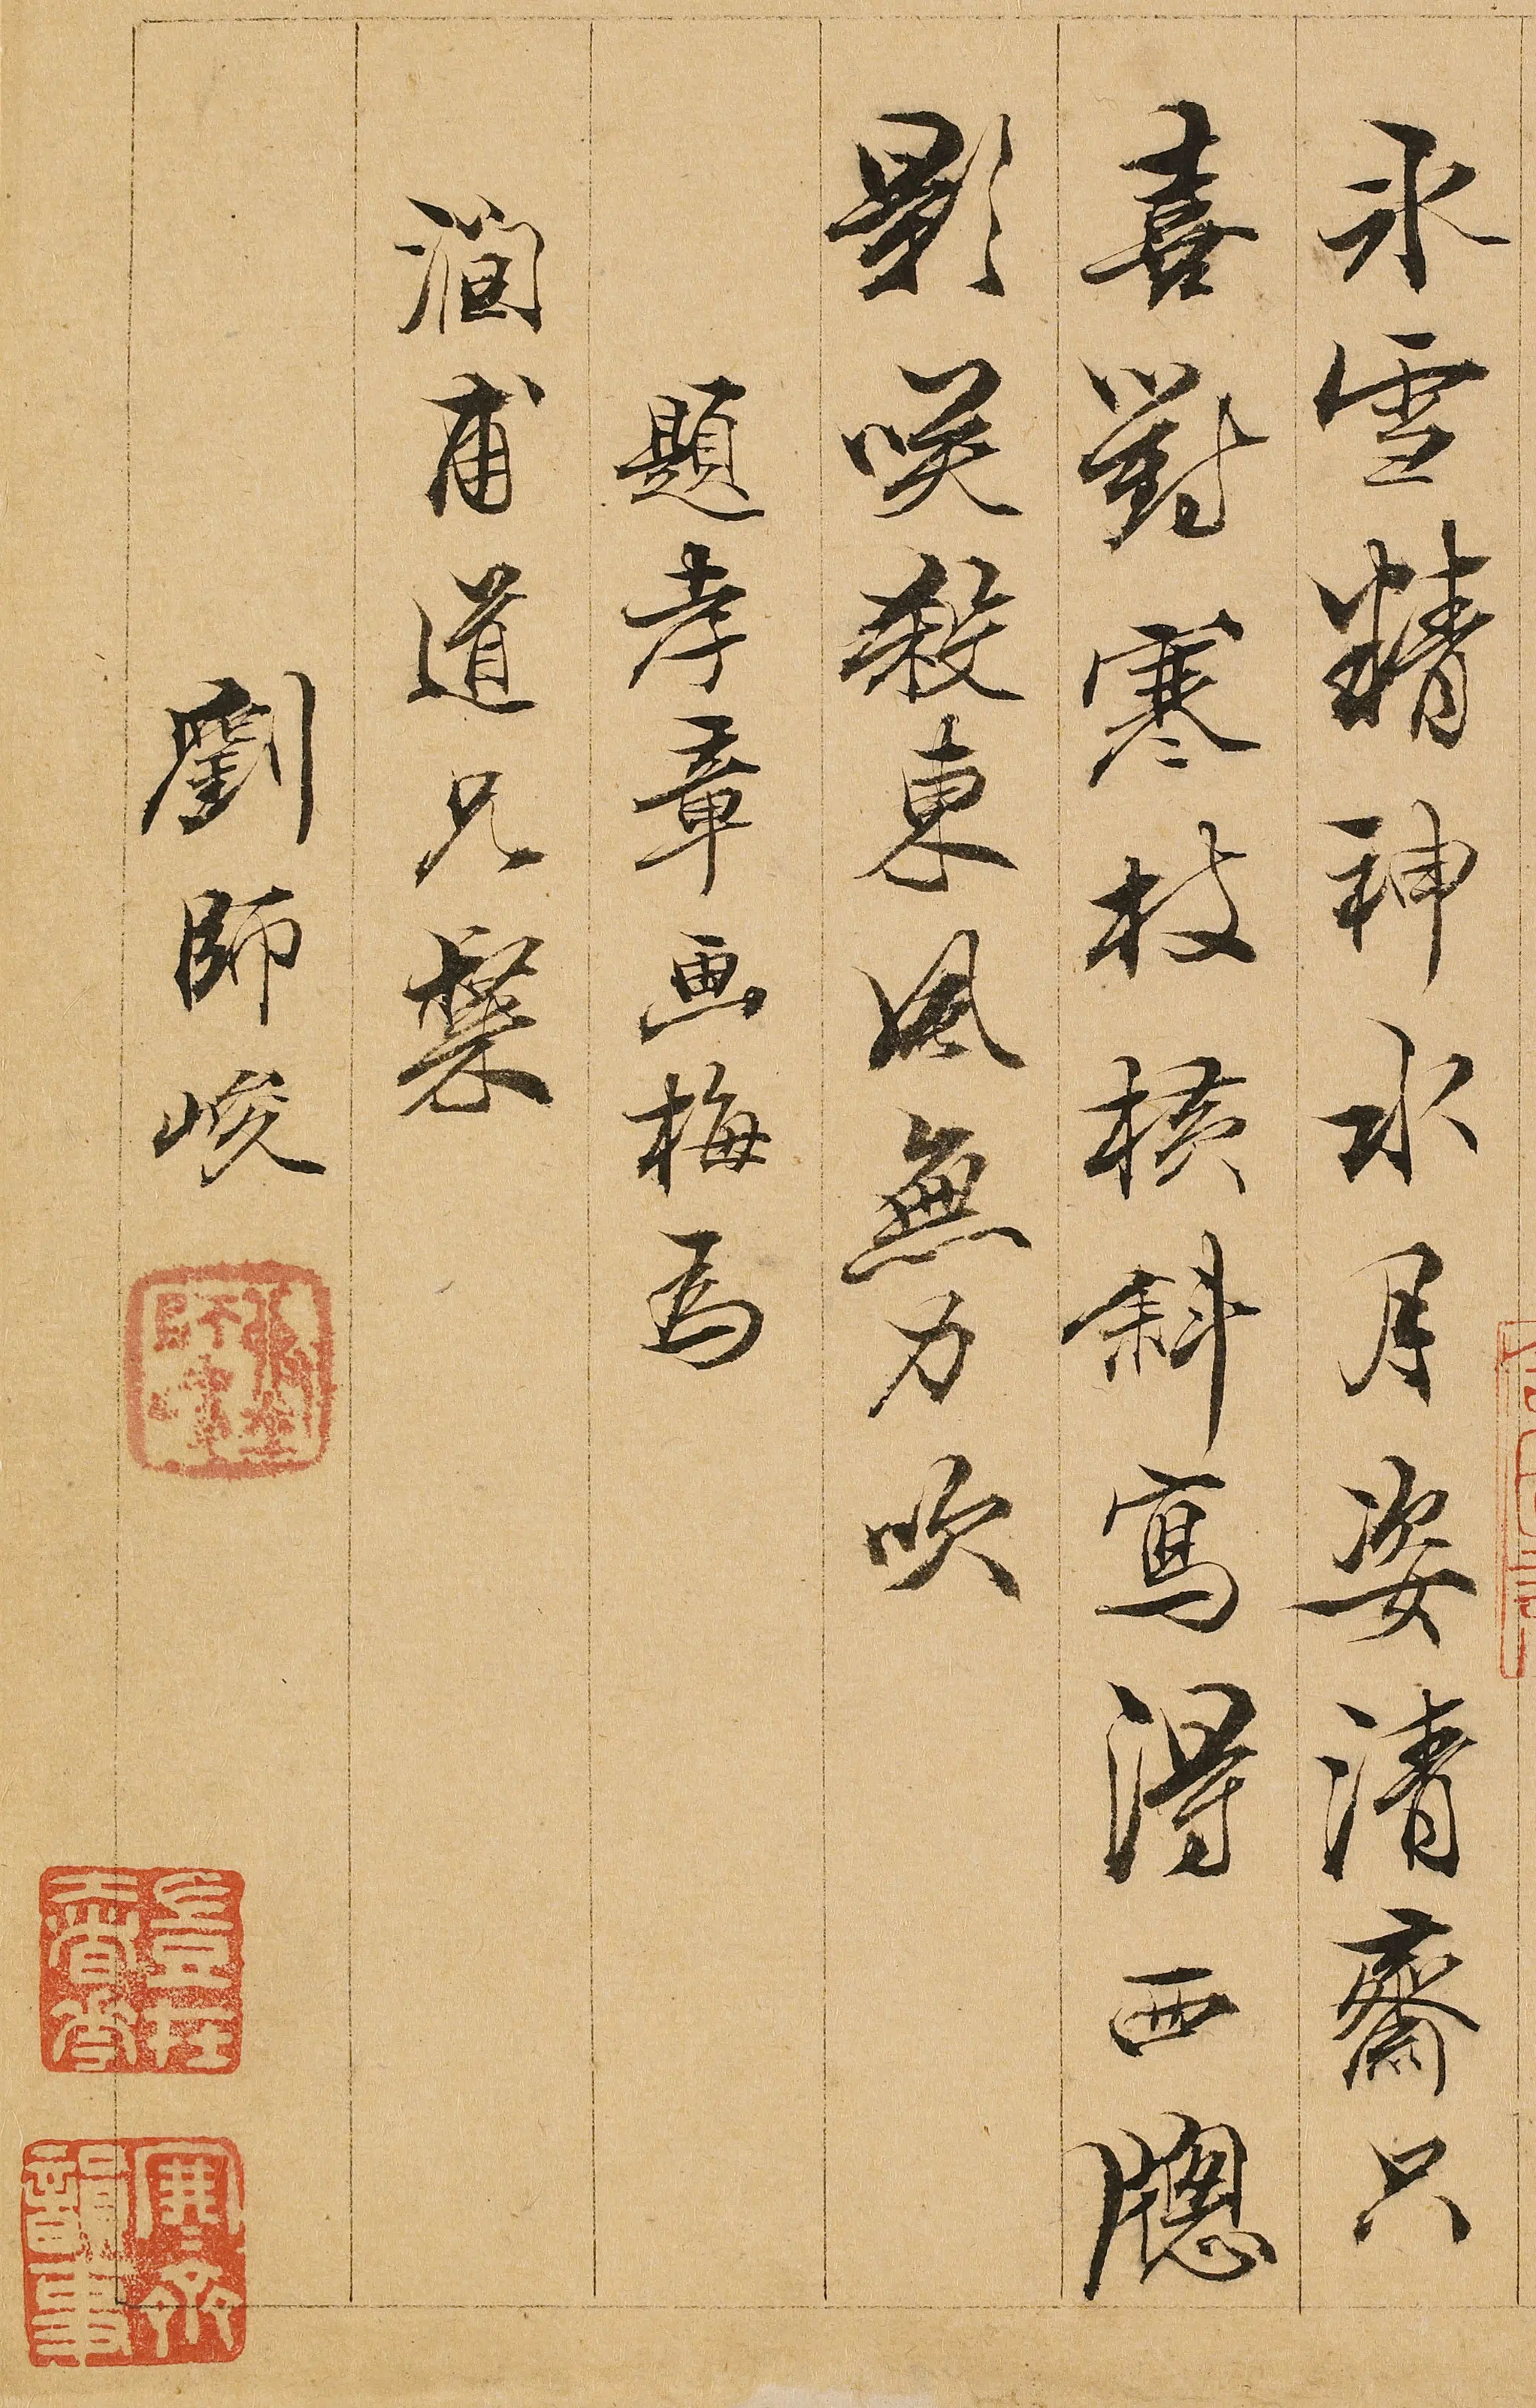 氷雪精神水月姿清齋只
喜對寒枝橫斜寫得西牕
影咲殺東風無力吹
題孝章画梅為
澗甫道兄
劉師峻